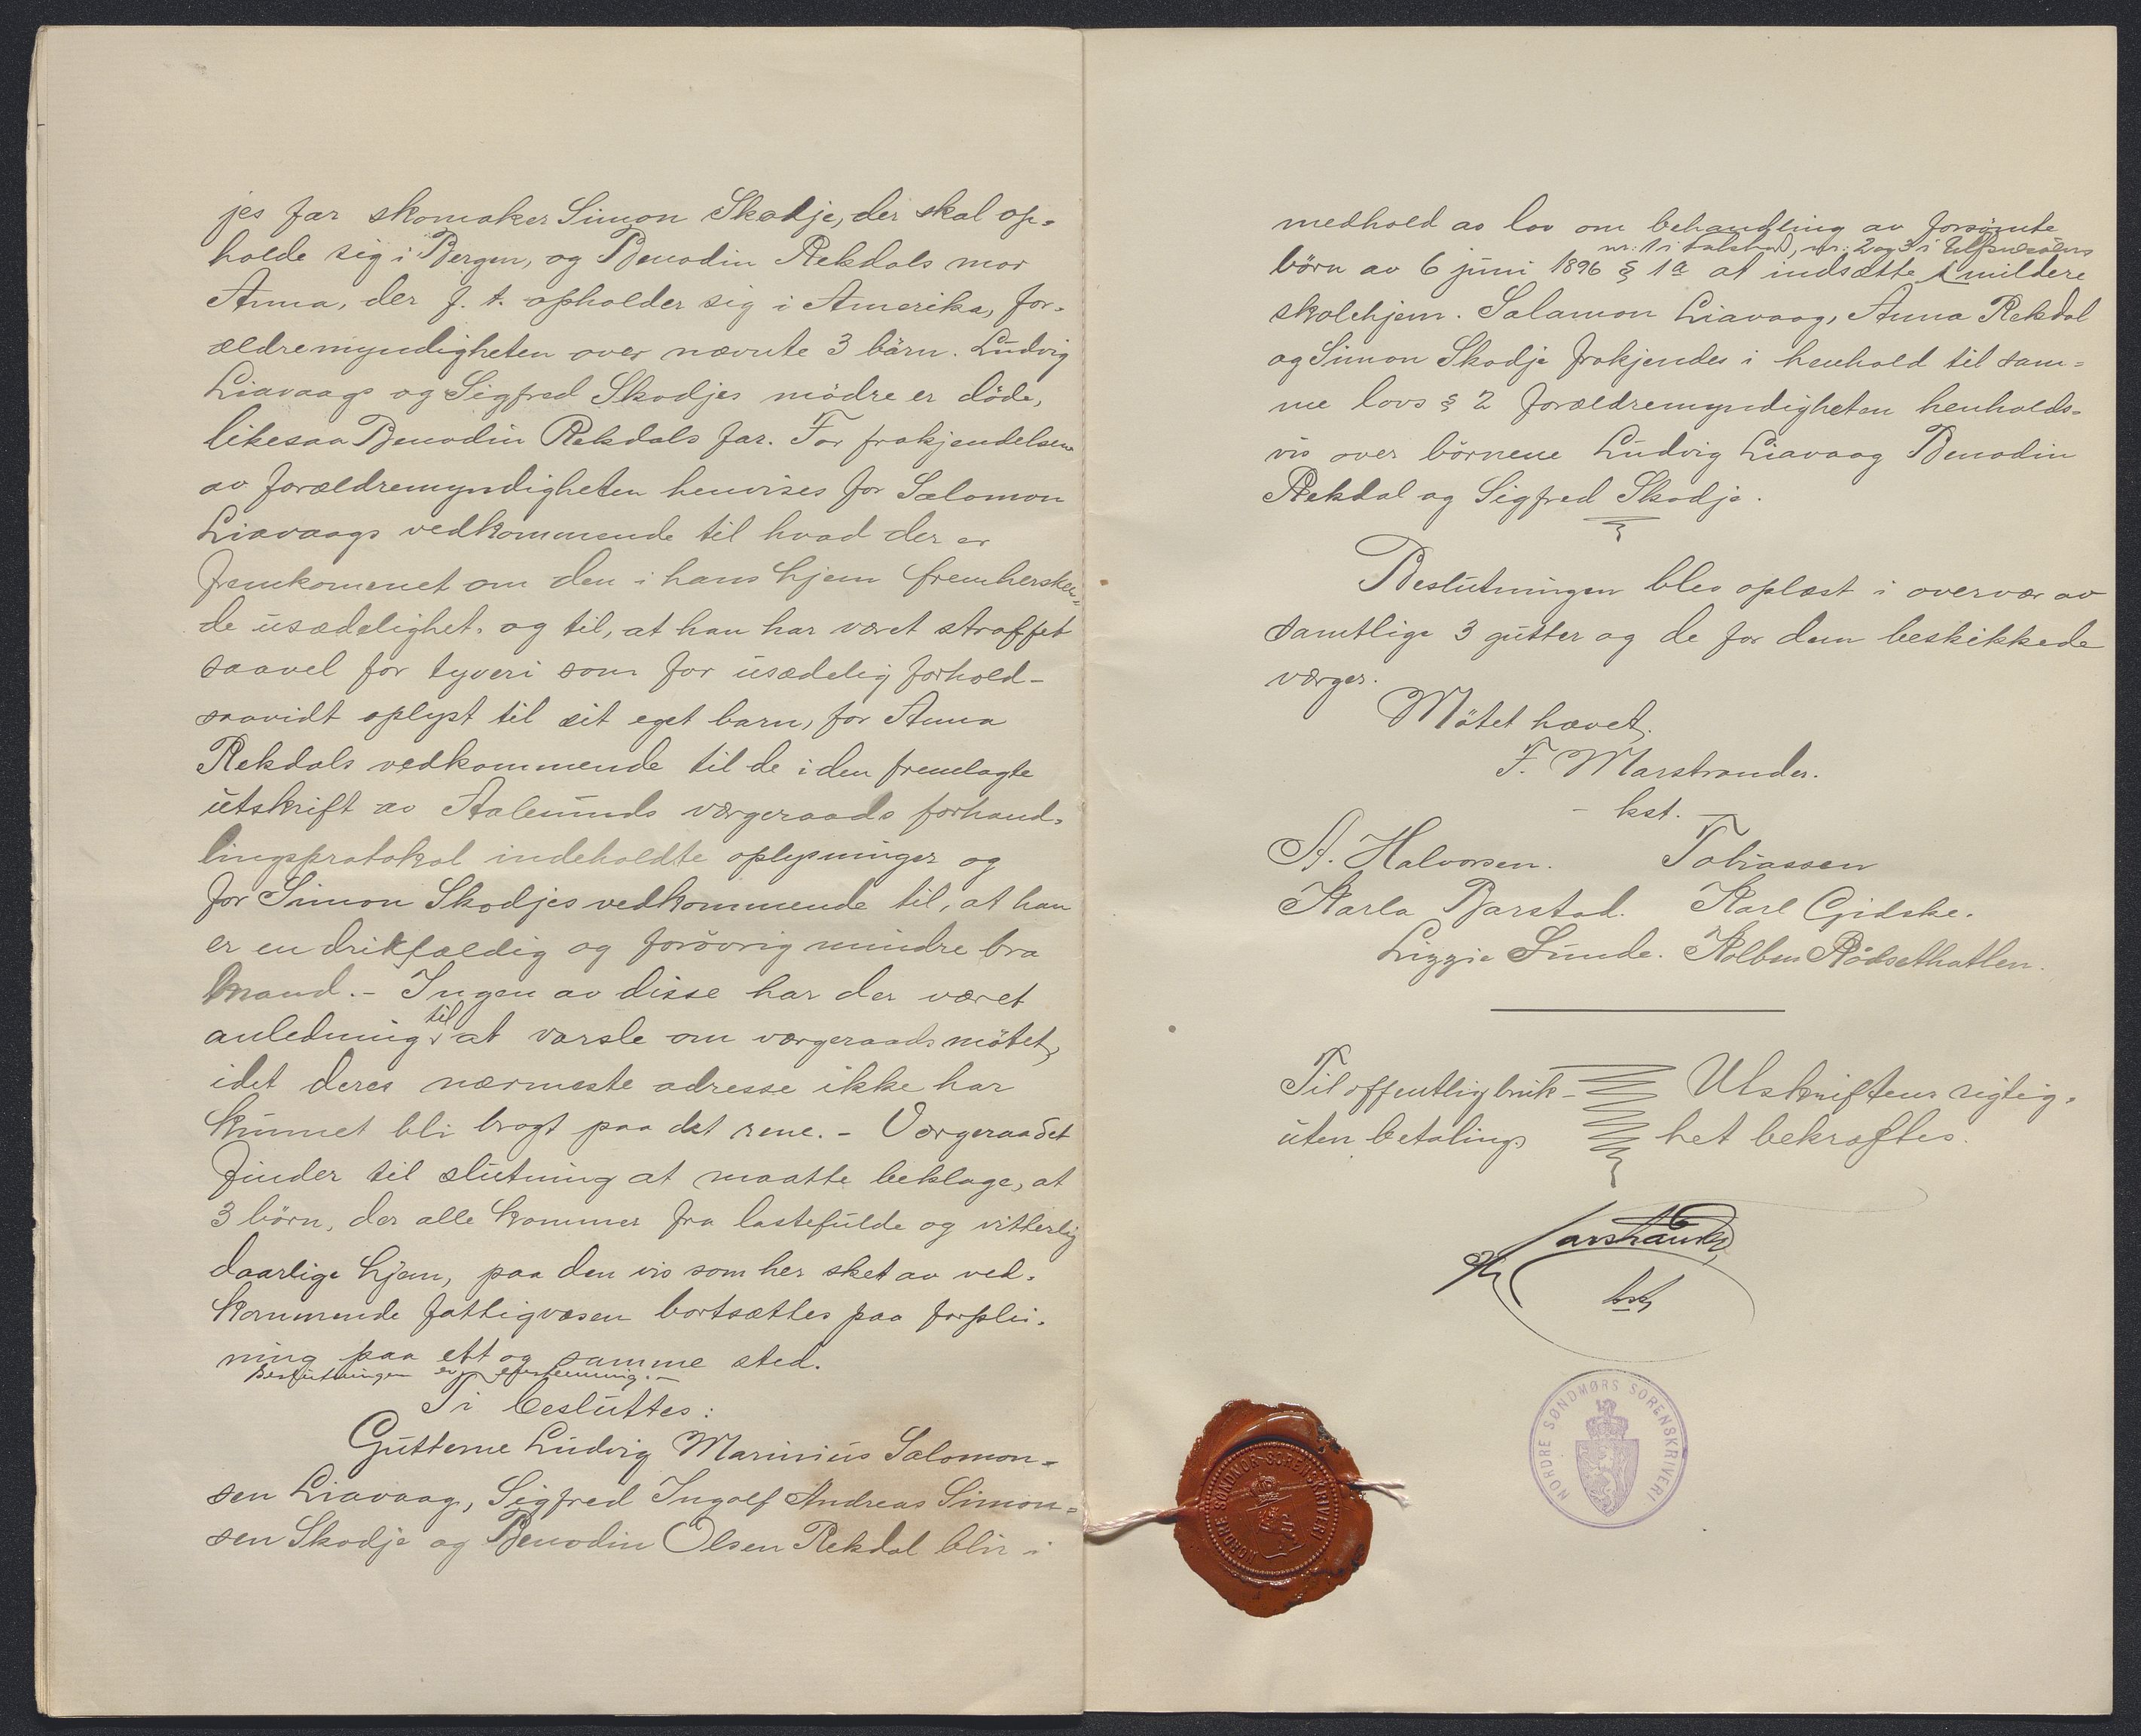 jes far skomaker Simon Skodje, der skal op-
holde sig i Bergen, og Benodin Rekdals mor
Anna, der f. t. opholder sig i Amerika, for-
ældremyndigheten over nævnte 3 börn. Ludvig
Liavaags og Sigfred Skodjes mödre er döde,
likesaa Benodin Rekdals far. For frakjendelsen
av forældremyndigheten henvises for Salomon
Liavaags vedkommende til hvad der er
fremkommet om den i hans hjem fremhersken-
de usædelighet, og til, at han har været straffet
saavel for tyveri som for usædelig forhold-
saavidt oplyst til sit eget barn, for Anna
Rekdals vedkommende til de i den fremlagte
utskrift av Aalesunds værgeraads forhand-
lingsprotokol indeholdte oplysninger og
for Simon Skodjes vedkommende til, at han
er en drikfældig og forövrig mindre bra
mand. - Ingen av disse har der været
anledning til at varsle om værgeraadsmötet,
idet deres nærmeste adresse ikke har
kunnet bli bragt paa det rene. - Værgeraadet
finder til slutning at maatte beklage, at
3 börn, der alle kommer fra lastefulde og vitterlig
daarlige hjem, paa den vis som her sket av ved-
kommende fattigvæsen bortsættes paa forplei-
ning paa ett og samme sted.
Beslutningen er enstemmig. -
Ti besluttes:
Gutterne Ludvig Marinius Salomon-
sen Liavaag, Sigfred Ingolf Andreas Simon-
sen Skodje og Benodin Olsen Rekdal blir i
medhold av lov om behandling av forsömte
nr: 1 i Falstad, nr: 2 og 3 i Ulfsnesöens
börn av 6 juni 1896 § 1a at indsætte i mildere
skolehjem. Salamon Liavaag, Anna Rekdal
og Simon Skodje frakjendes i henhold til sam-
me lovs § 2 forældremyndigheten henholds-
vis over börnene Ludvig Liavaag Benodin
Rekdal og Sigfred Skodje.
Beslutningen blev oplæst i overvær av
samtlige 3 gutter og de for dem beskikkede
værger.
Mötet hævet.
F. Marstrander.
- kst. -
A. Halvorsen. Tobiassen
Karla Barstad. Karl Gidske.
Lizzie Sunde. Kolben Rödsethatlen.
Til offentlig bruk - Utskriftens rigtig-
uten betaling. het bekræftes.
Marstrander
kst
NORDRE SØNDMØRS SORENSKRIVERI
NORDRE SUNDMØR SORENSKRIVERI